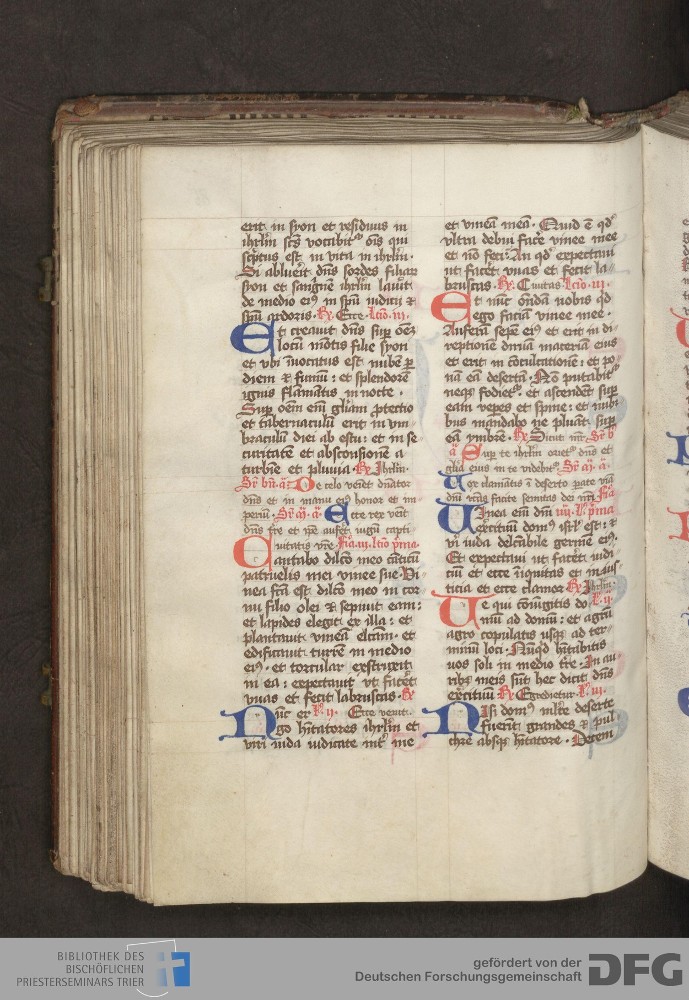 erit in syon et residuus in
ihrlm scs vocabit᷑ oīs qui
scptus est in vita in ihrlm ·
Si abluerit dns sordes filiar
syon et sanguīē ihrlm lauīt
de medio eiꝰ in spū iudicij ⁊
spū ardoris · R̷ Ecce · Lcō · iii ·
Et creauit dns sup oēȝ
locū mōtis filie syon
et vbi īuocatus est nubē p̱
diem ⁊ fumū : et splendorē
ignis flāmātis in nocte ·
Sup oēm em̄ gliam ꝓtectio
et tabernaculū erit in vm-
braculū diei ab estu : et in se
curitatē et absconsionē a
turbīe et pluuia · R̷ Ihrlm ·
De celo veīet dnator
dns et in manu eiꝰ honor et im
periū · Ecce rex veīt
dns t̄re et ip̄e aufet iugū capti-
uitatis nr̄e · Fīa · iii · lcō p̄ma ·
Cantabo dilcō meo cāticū
patruelis mei vinee sue · Vi
nea fcā est dilcō meo in cor
nu filio olei ⁊ sepiuit eam :
et lapides elegit ex illa : et
plantauit vineā elcām · et
edificauit turrē in medio
eiꝰ · et torcular exstruxit
in ea : expectauit vt facēt
vuas et fecit labruscas · R̷
Nūc er · L̄ · ii · Ecce venit ·
go hītatores ihrlm et
viri iuda iudicate int᷑ me
et vineā meā · Quid ē qd̓
vltra debui facē vinee mee
et nō feci · An qd̓ expectaui
ut facēt vuas et fecit la-
bruscas · R̷ · Ciuitas · Lcio · iii ·
Et nūc ōndā uobis qd̓
ego faciā vinee mee ·
Auferā sepē eiꝰ et erit in di-
reptionē diruā maceriā eius
et erit in cōculcationē : et po-
nā eā desertā · Nō putabit᷑
neqȝ fodiet᷑ · et ascendēt sup
eam vepes et spine : et nubi-
bus mandabo ne pluāt sup
eā imbrē · R̷ Dicut nr̄
Sup te ihrlm oriet᷑ dns et
gliā eius in te videbit᷑
Vox clamātis ī deserto parate viā
dni rc̄as facite semitas dei nrī · Fīa
Vinea em̄ dni · iiii · L̄ p̄ma
exercituū domꝰ isrl̄ est : ⁊
vir iuda delcābile germē eiꝰ ·
Et expectaui ut facēt iudi-
ciū et ecce īiquitas et in ius
ticia et ecce clamor · R̷ Ihrlm ·
Ve qui cōiūgitis do · L̄ · ii ·
mū ad domū : et agrū
agro copulatis usqȝ ad ter-
minū loci · Nūqd̓ hītabitis
vos soli in medio tr̄e · In au-
ribꝰ meis sūt hec dicit dns
exercituū · R̷ Egredietur · L̄ · iii ·
Nisi domꝰ mlt̄e deserte
fuerīt grandes ⁊ pul-
chre absqȝ hītatore · Decem
BIBLIOTHEK DES
BISCHÖFLICHEN
PRIESTERSEMINARS TRIER
gefördert von der
Deutschen Forschungsgemeinschaft
DFG